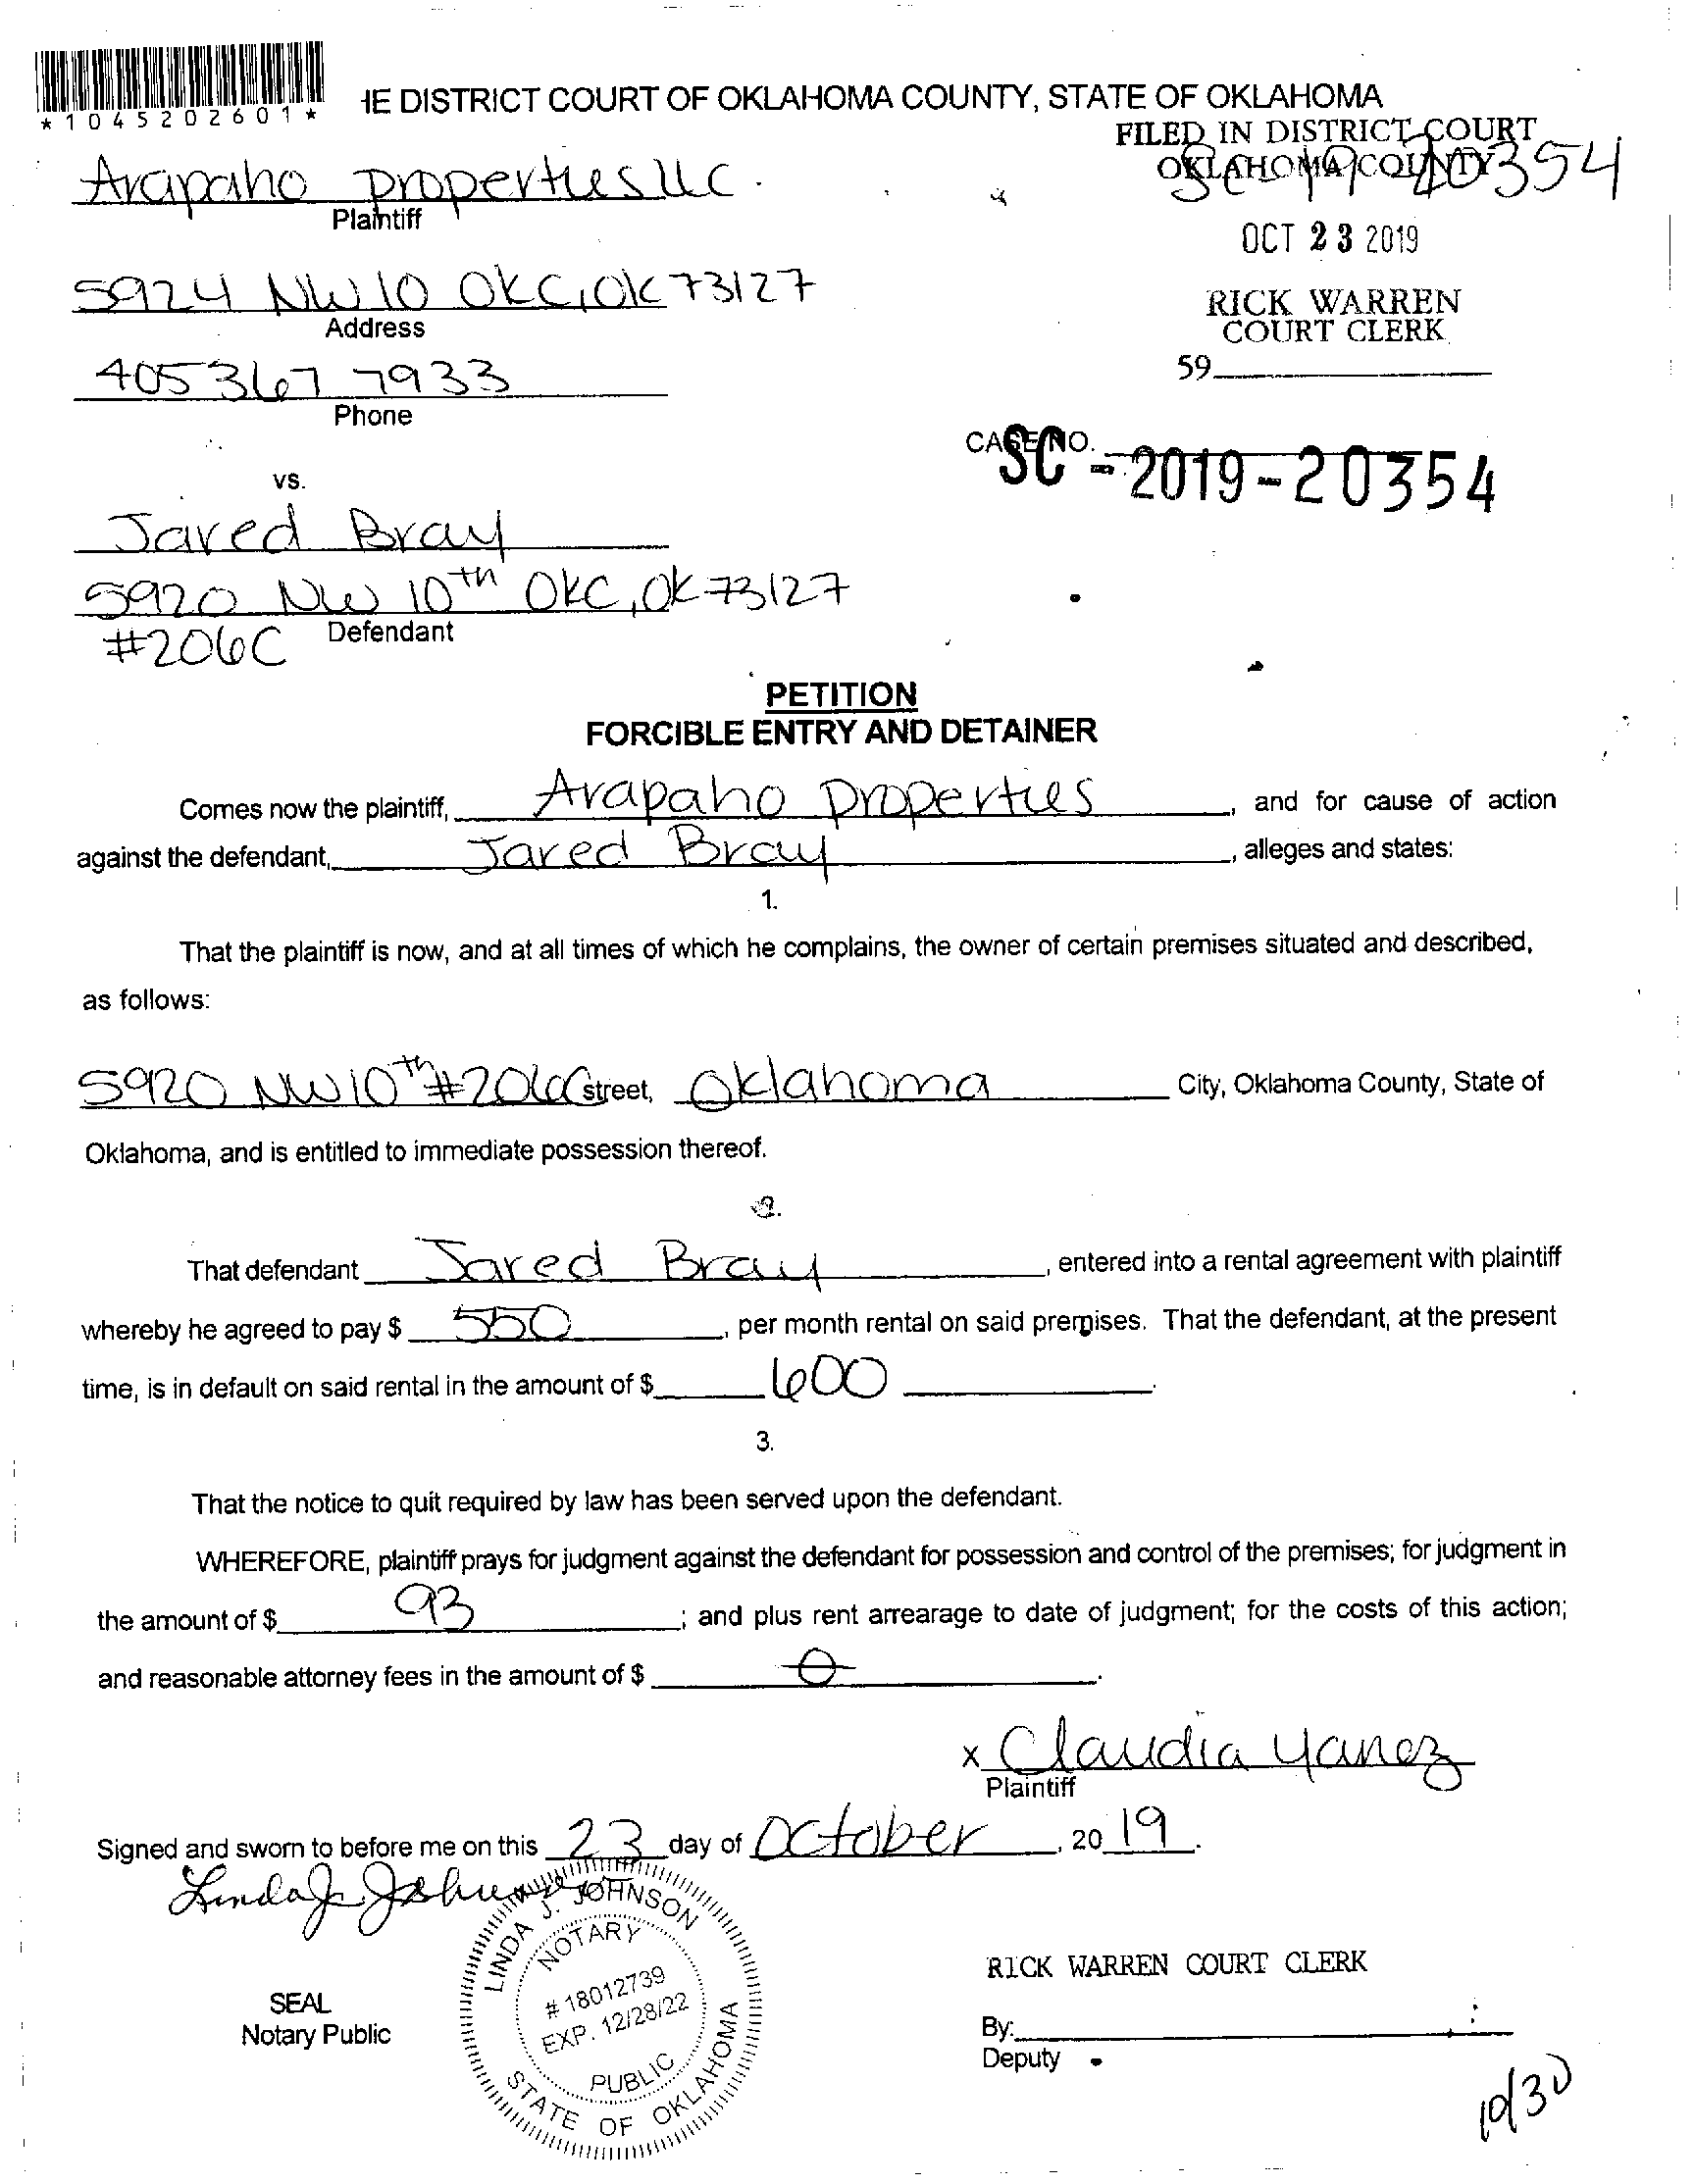 *1045202601*
HE DISTRICT COURT OF OKLAHOMA COUNTY, STATE OF OKLAHOMA
FILED IN DISTRICT COURT
OKLAHOMA COUNTY
SC-19-20354
Arapaho properties llc.
Plaintiff
OCT 23 2019
5924 NW 10 OKC, OK 73127
Address
RICK WARREN
COURT CLERK
59
405 367 7933
Phone
CASE NO.
SC-2019-20354
vs.
Jared Bray
5920 NW 10th OKC, OK 73127
#206C Defendant
PETITION
FORCIBLE ENTRY AND DETAINER
Comes now the plaintiff, Arapaho Properties, and for cause of action
against the defendant, Jared Bray, alleges and states:
1.
That the plaintiff is now, and at all times of which he complains, the owner of certain premises situated and described,
as follows:
5920 NW 10th #206C street, Oklahoma City, Oklahoma County, State of
Oklahoma, and is entitled to immediate possession thereof.
2.
That defendant Jared Bray, entered into a rental agreement with plaintiff
whereby he agreed to pay $ 550, per month rental on said premises. That the defendant, at the present
time, is in default on said rental in the amount of $ 600.
3.
That the notice to quit required by law has been served upon the defendant.
WHEREFORE, plaintiff prays for judgment against the defendant for possession and control of the premises; for judgment in
the amount of $ 93; and plus rent arrearage to date of judgment; for the costs of this action;
and reasonable attorney fees in the amount of $ 0.
x Claudia Yanez
Plaintiff
Signed and sworn to before me on this 23 day of October, 2019.
Linda J Johnson
LINDA J. JOHNSON
NOTARY
# 18012739
EXP. 12/28/22
PUBLIC
STATE OF OKLAHOMA
SEAL
Notary Public
RICK WARREN COURT CLERK
By:
Deputy
10/30